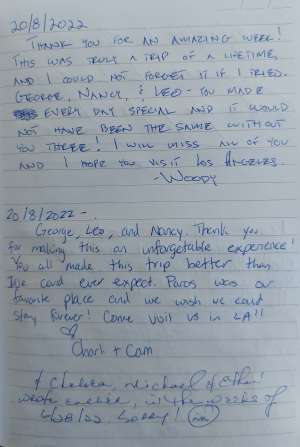 20/8/2022
THANK YOU FOR AN AMAZING WEEK!
THIS WAS TRULY A TRIP OF A LIFETIME,
AND I COULD NOT FORGET IT IF I TRIED.
GEORGE, NANCY, & LEO - YOU MADE
EVERY DAY SPECIAL AND IT WOULD
NOT HAVE BEEN THE SAME WITHOUT
YOU THREE! I WILL MISS ALL OF YOU
AND I HOPE YOU VISIT LOS ANGELES.
-WOODY
20/8/2022 -
George, Leo, and Nancy. Thank you
for making this an unforgettable experience!
You all made this trip better than
I've card ever expect. Paros was our
favorite place and we wish we could
stay forever! Come visit us in LA!!
Charli + Cam
Chelsea, Michael &
wrote earlier, in the weeks of
Sorry!